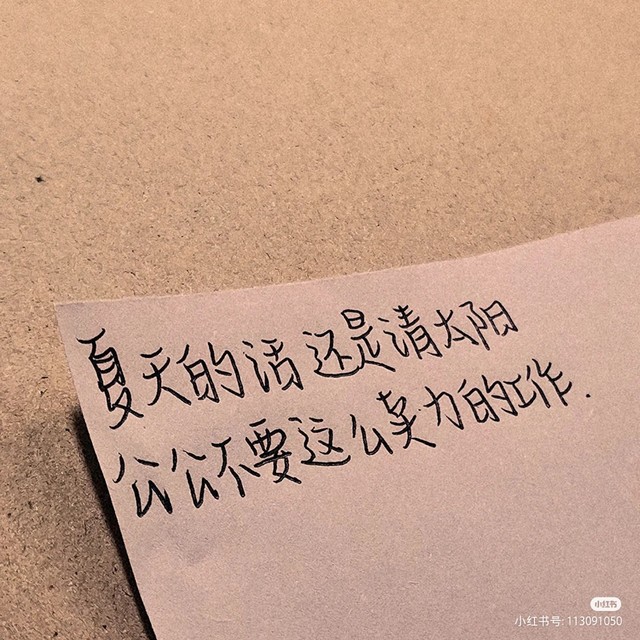 夏天的话还是清太阳
公公不要这么卖力的工作.
小红书
小红书号: 113091050